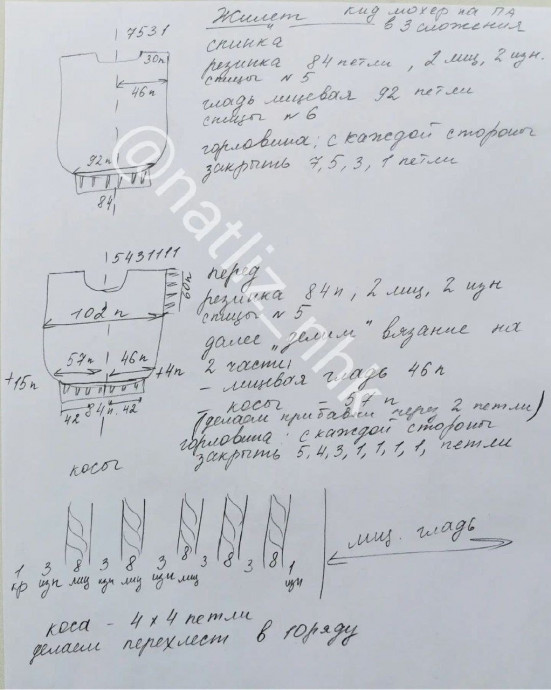 Жилет кид мохер на ПА
в 3 сложения
7531
30п
46п
92п
84
спинка
резинка 84 петли, 2 лиц, 2 изн.
спицы №5
гладь лицевая 92 петли
спицы №6
горловина: с каждой стороны
закрыть 7, 5, 3, 1 петли
5431111
60п
102 п
57п 46п
+15п +4п
84п
42 42
перед
резинка 84п, 2 лиц, 2 изн
спицы №5
далее "делим" вязание на
2 части
- лицевая гладь 46п
косы - 57 п
(делаем прибавки через 2 петли)
горловина: с каждой стороны
закрыть 5, 4, 3, 1, 1, 1, 1, петли
косы
1 3 8 3 8 3 8 3 8 3 8 1
кр изн лиц изн лиц изн лиц изн
лиц. гладь
коса - 4 х 4 петли
делаем перехлест в 10 ряду
@natliz_nhk